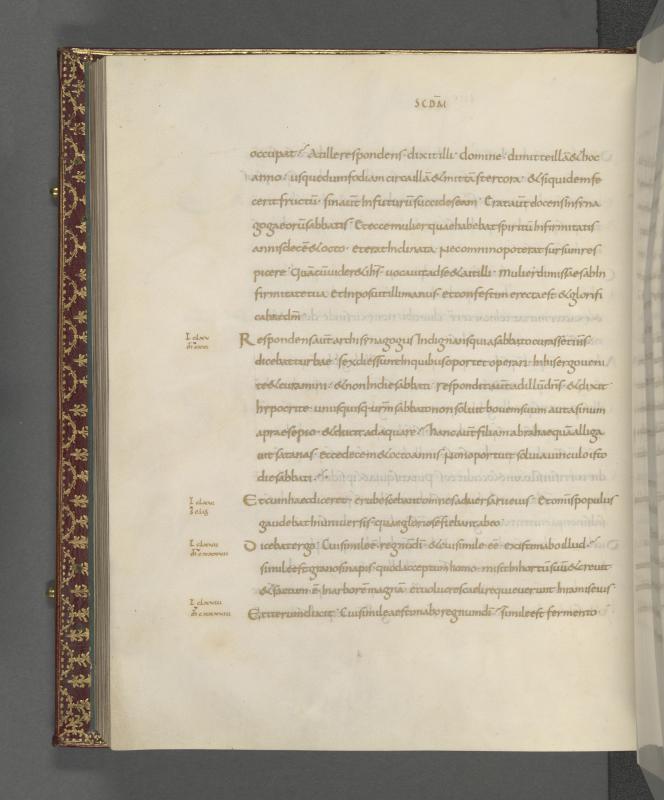 SCDM
occupat. At ille respondens dixit illi. domine dimitte illā & hoc
anno. usquedum fodiam circa illā & mittā stercora. & siquidem fe
cerit fructū. sin aut In futurū succides eam. Erat aut docens In syna
goga eorū sabbatis. Et ecce mulier quae habebat spiritū Infirmitatis
annis decē & octo. et erat Inclinata. Nec omnino poterat sursum res
picere. Quā cū vider& ihs. vocavit ad se & ait illi. mulier dimissa es ab In
firmitate tua. Et Inposuit illi manus. et confestim erecta est & glorifi
cabat dm̄
Respondens aut archisynagogus Indignans quia sabbato curass& ihs
dicebat turbae. sex dies sunt In quibus oport& operari. In his ergo veni
te & curamini. & non In die sabbati. respondit aut ad illū dns & dixit
hypocrite. unusquisq. urm sabbato non solvit bovem suum aut asinum
a praesepio. & ducit adaquare. hanc aut filiam abrahae quā alliga
vit satanas. ecce decem & octo annis. Non oportuit solvi a vinculo isto
die sabbati.
Et cum haec diceret. erubescebant omnes adversarii eius. Et omnis populus
gaudebat In universis. quae gloriose fiebant ab eo
Dicebat ergo. Cui simile ē regnū dī. & cui simile eē existimabo illud.
simile est grano sinapis. quod acceptum homo. misit In hortū suū & crevit
& factum ē In arborē magnā. et volucres caeli requieverunt In ramis eius
Et iterum dixit. Cui simile aestimabo regnum dī. simile est fermento